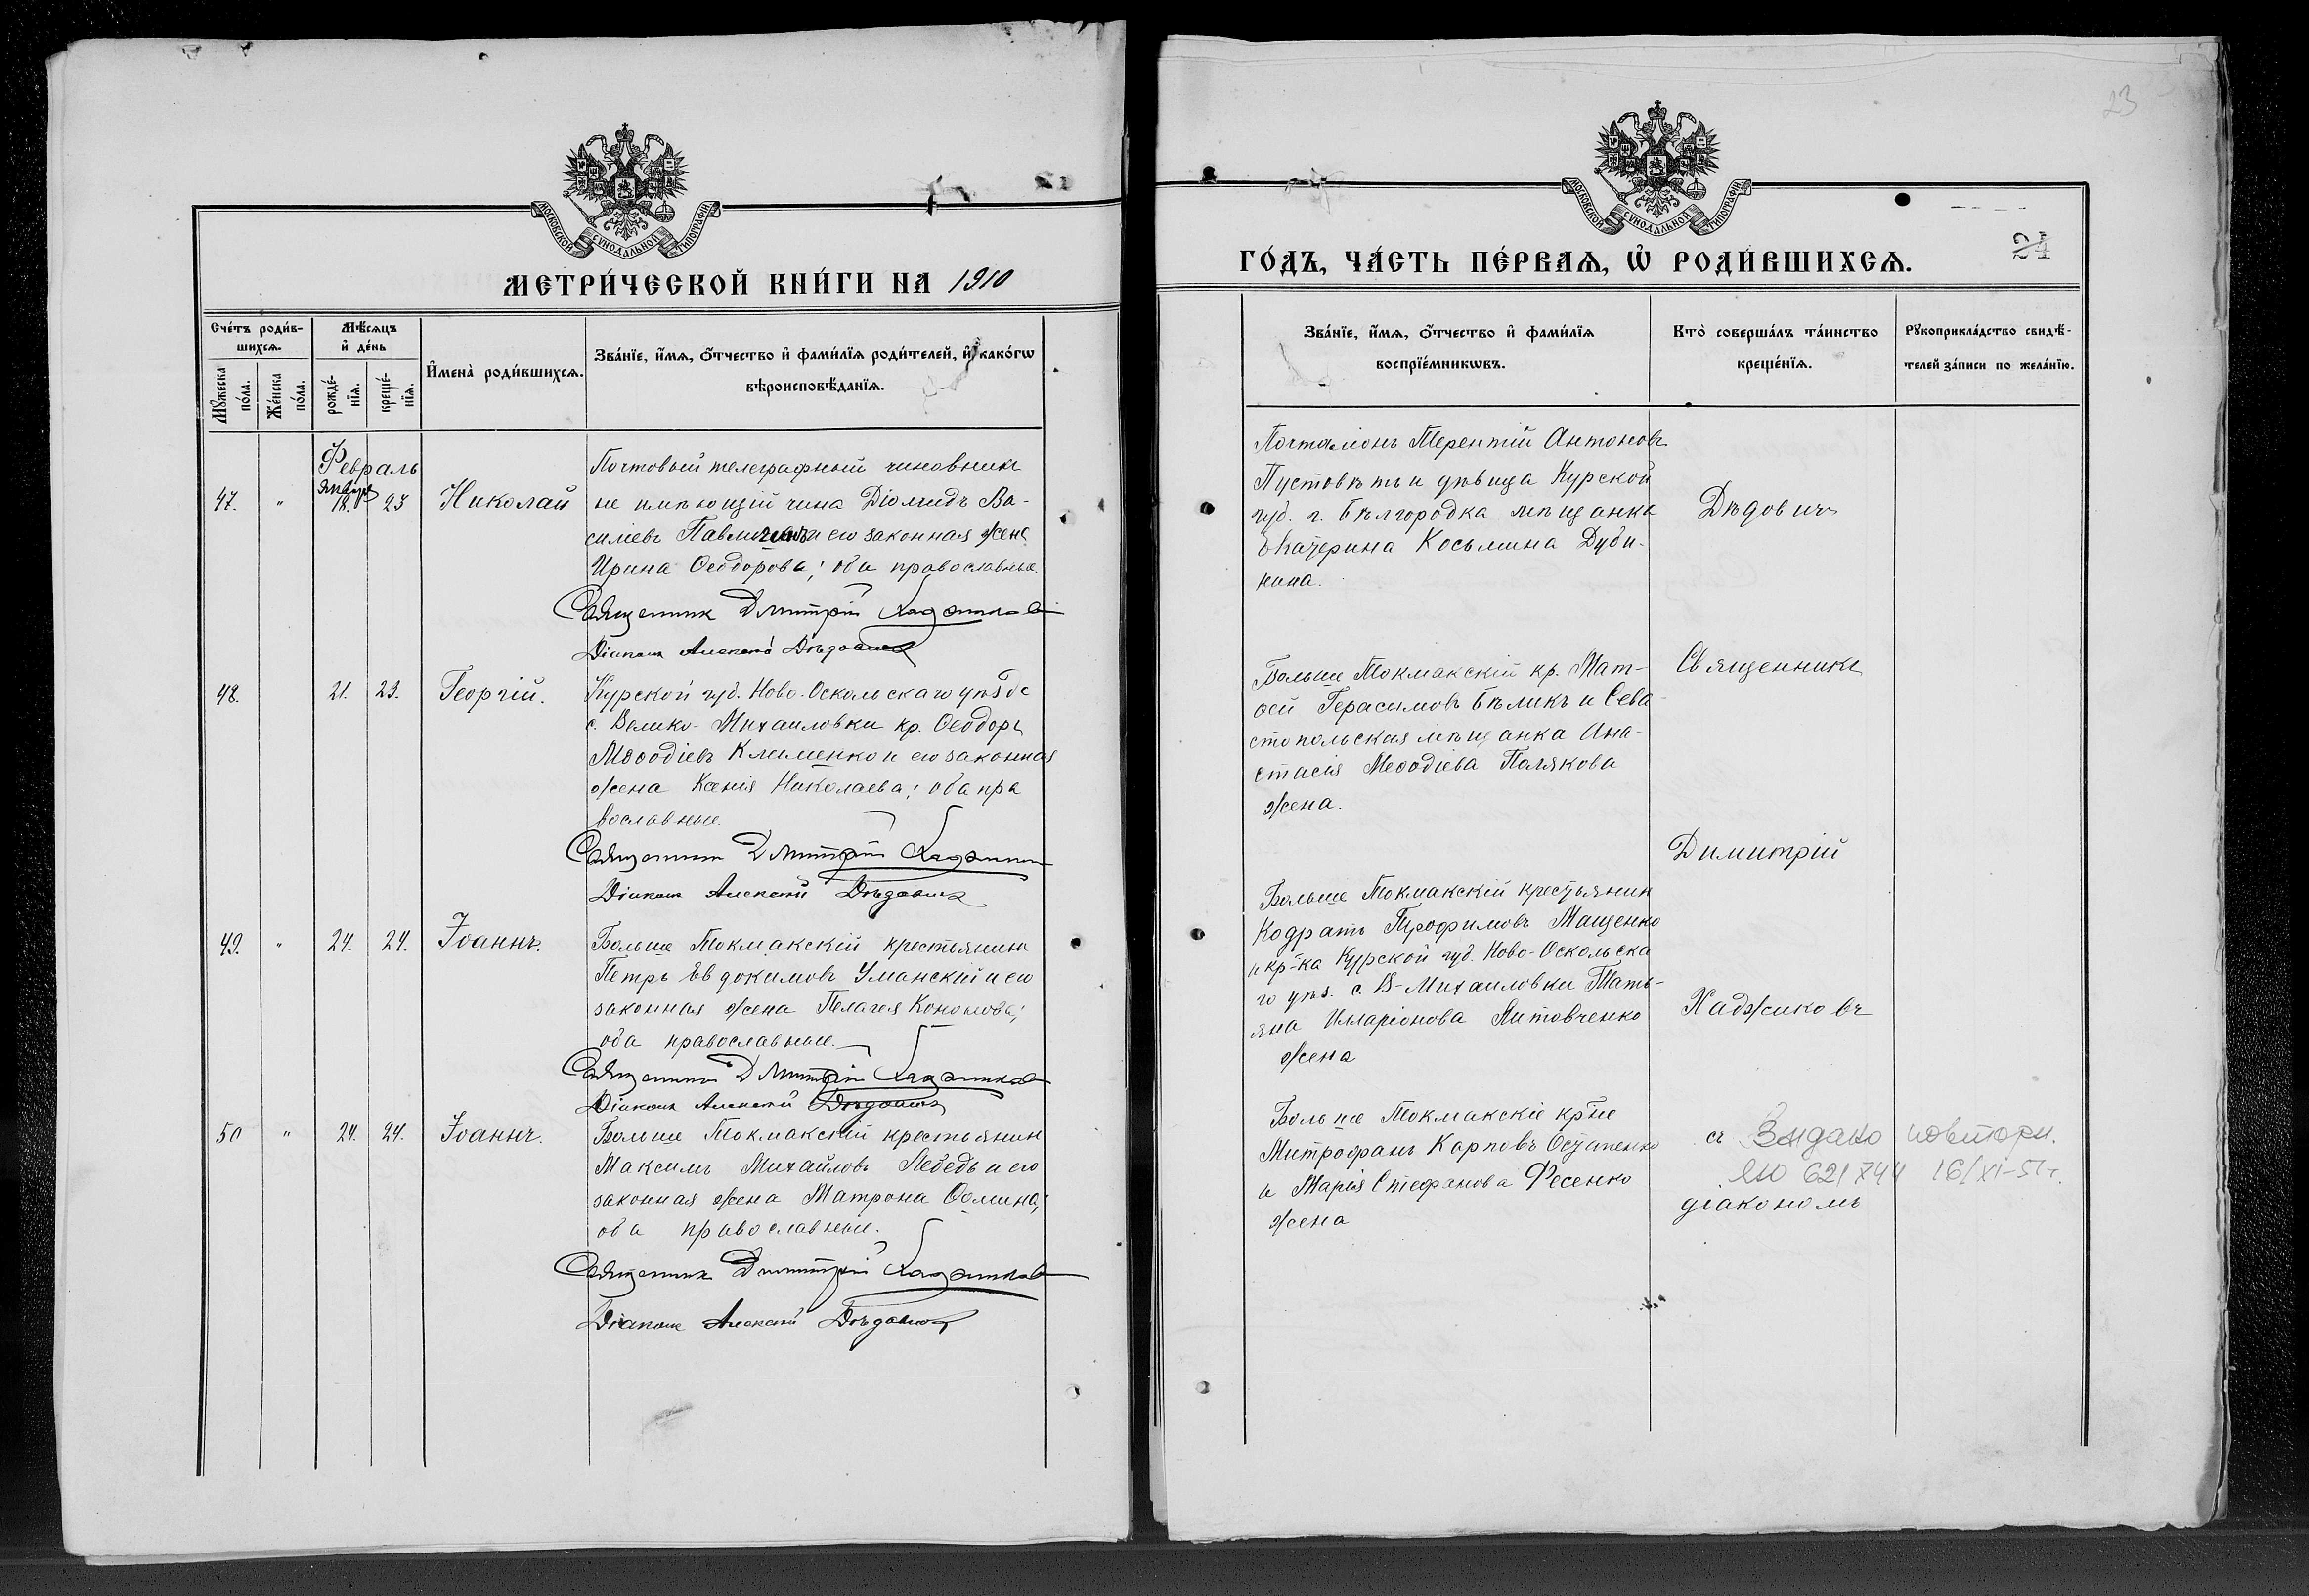 МОСКОВСКОЙ СѴНОДАЛЬНОЙ ТИПОГРАФІИ
МЕТРИ́ЧЕСКОЙ КНИ́ГИ НА 1910
Сче́тъ роди́в-
шихсѧ.
Мѣ́сѧцъ
и҆ де́нь
Мꙋ́жеска
по́ла.
Же́нска
по́ла.
рожде́-
нїѧ.
креще́-
нїѧ.
И҆мена̀ роди́вшихсѧ.
Зва́нїе, и҆́мѧ, ѻ҆́тчество и҆ фами́лїѧ роди́телей, и҆ како́гѡ
вѣроисповѣ́данїѧ.
Февраль
47. " Января 18. 23 Николай
Почтовый телеграфный чиновникъ
не имѣющій чина Діомидъ Ва-
силіевъ и его законная жена
Ирина Ѳеодорова; оба православные.
Священник Дмитрій Хаджиковъ
Діаконъ Алексѣй Дѣдовичъ
48. 21. 23. Георгій.
Курской губ. Ново-Оскольскаго уѣзда
с. Велико-Михаиловки кр. Ѳеодоръ
Меѳодіевъ Клименко и его законная
жена Ксенія Николаева; оба пра
вославные.
Священник Дмитрій Хаджиковъ
Діаконъ Алексѣй Дѣдовичъ
49. " 24. 24. Іоаннъ.
Больше Токмакскій крестьянин
Петръ Евдокимовъ Уманскій и его
законная жена Пелагея Кононова;
оба православные.
Священник Дмитрій Хаджиковъ
Діаконъ Алексѣй Дѣдовичъ
50 " 24. 24. Іоаннъ.
Больше Токмакскій крестьянин
Максимъ Михайловъ Лебедь и его
законная жена Матрона Ѳомина;
оба православные.
Священник Дмитрій Хаджиковъ
Діаконъ Алексѣй Дѣдовичъ
23
МОСКОВСКОЙ СѴНОДАЛЬНОЙ ТИПОГРАФІИ
24
ГО́ДЪ, ЧА́СТЬ ПЕ́РВАѦ, Ѡ҆ РОДИ́ВШИХСѦ.
Зва́нїе, и҆́мѧ, ѻ҆́тчество и҆ фами́лїѧ
воспрїе́мникѡвъ.
Кто̀ соверша́лъ та́инство
креще́нїѧ.
Рꙋкоприкла́дство свидѣ́-
телей за́писи по жела́нїю.
Почталіонъ Терентій Антоновъ
Пустовѣтъ и дѣвица Курской
губ. г. Бѣлгородка мѣщанка
Екатерина Косьмина Дуби-
нина.
Дѣдовичъ
Больше Токмакскій кр. Мат-
ѳей Герасимовъ Бѣликъ и Сева-
стопольская мѣщанка Ана-
стасія Меѳодіева Полякова
жена.
Священникъ
Димитрій
Больше Токмакскій крестьянин
Кодратъ Трофимовъ Мащенко
и кр-ка Курской губ. Ново-Оскольска
го уѣз. с. В-Михаиловки Тать-
яна Илларіонова Литовченко
жена
Хаджиковъ
Больше Токмакскіе кр-не
Митрофанъ Карповъ Остапенко
и Марія Стефанова Фесенко
жена
съ
діакономъ
Видано повторн.
621744 16/XI-51г.